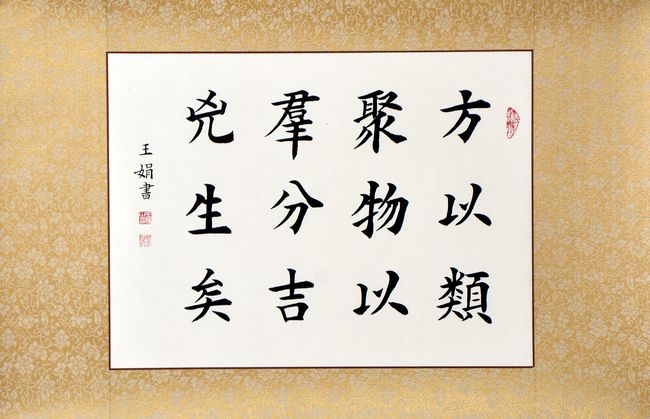 方以類
聚物以
羣分吉
兇生矣
王娟書